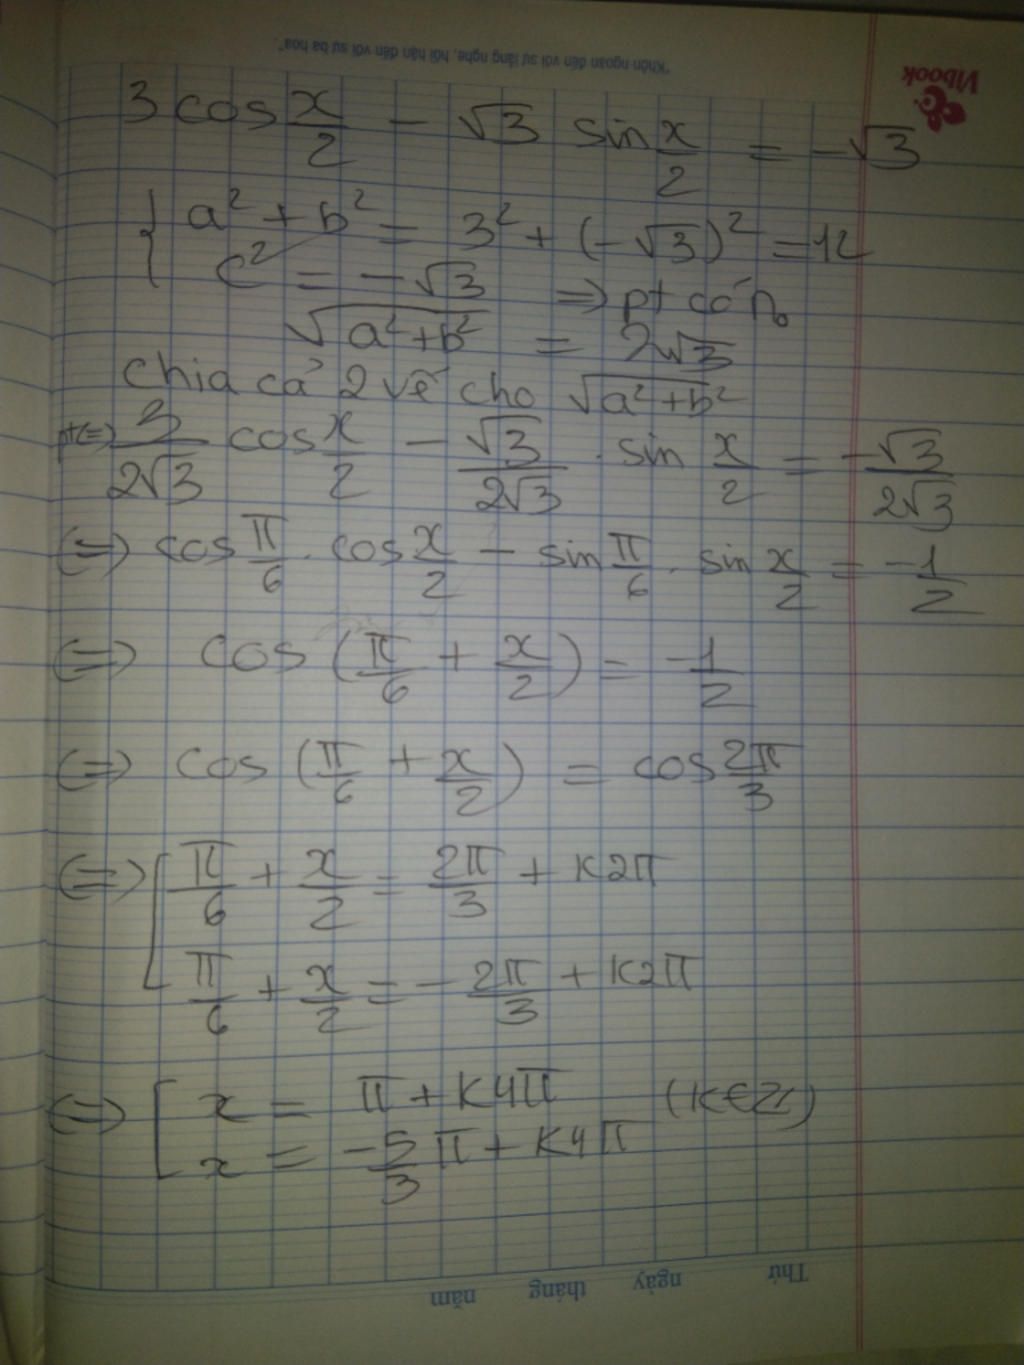 "Khôn ngoan đến với sự lắng nghe, hối hận đến với sự ba hoa".
Vibook
3 cos x/2 - √3 sin x/2 = -√3
{ a² + b² = 3² + (-√3)² = 12
c² = -√3 ⇒ pt có n₀
√(a²+b²) = 2√3
Chia cả 2 vế cho √(a²+b²)
pt(=) 3/(2√3) cos x/2 - √3/(2√3) . sin x/2 = -√3/(2√3)
(=) cos π/6 . cos x/2 - sin π/6 . sin x/2 = -1/2
(=) cos (π/6 + x/2) = -1/2
(=) cos (π/6 + x/2) = cos 2π/3
(=) [ π/6 + x/2 = 2π/3 + K2π
π/6 + x/2 = -2π/3 + K2π
(=) [ x = π + K4π (K∈Z)
x = -5/3 π + K4π
Thứ ngày tháng năm